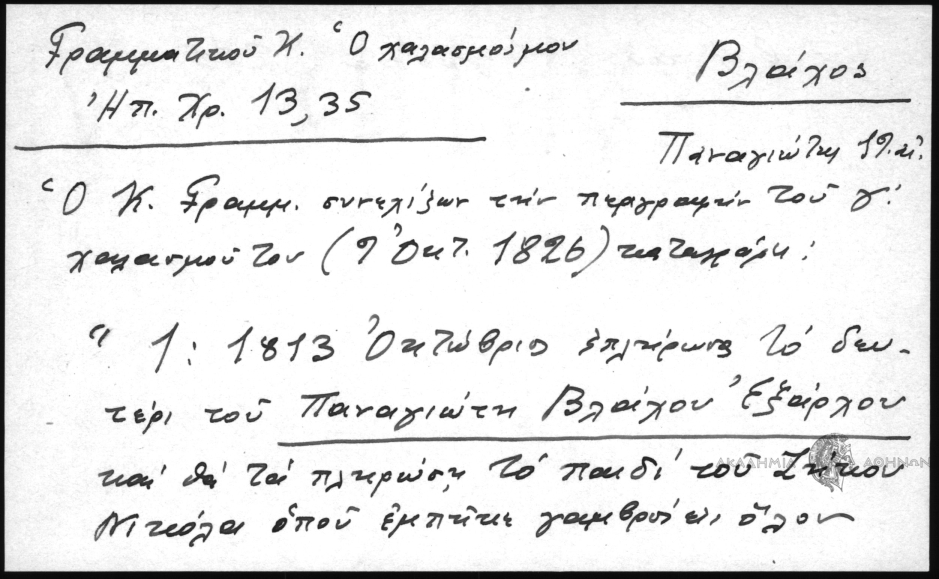 Γραμματικοῦ Κ. Ὁ χαλασμός μου
Βλάχος
Ἠπ. Χρ. 13, 35
Παναγιώτης 19. αἰ.
Ὁ Κ. Γραμμ. συνεχίζων τὴν περιγραφήν τοῦ γ΄
χαλασμοῦ του (9 Ὀκτ. 1826) καταγράφει:
" 1: 1813 Ὀκτώβριο ἐπλήρωσα τό δευ-
τέρι τοῦ Παναγιώτη Βλάχου Ἐξάρχου
καί θά τά πληρώσῃ τό παιδί τοῦ Ζήκου
Νικόλα ὁποῦ ἐμπῆκε γαμβρός εἰς ὅλον
ΑΚΑΔΗΜΙΑ ΑΘΗΝΩΝ